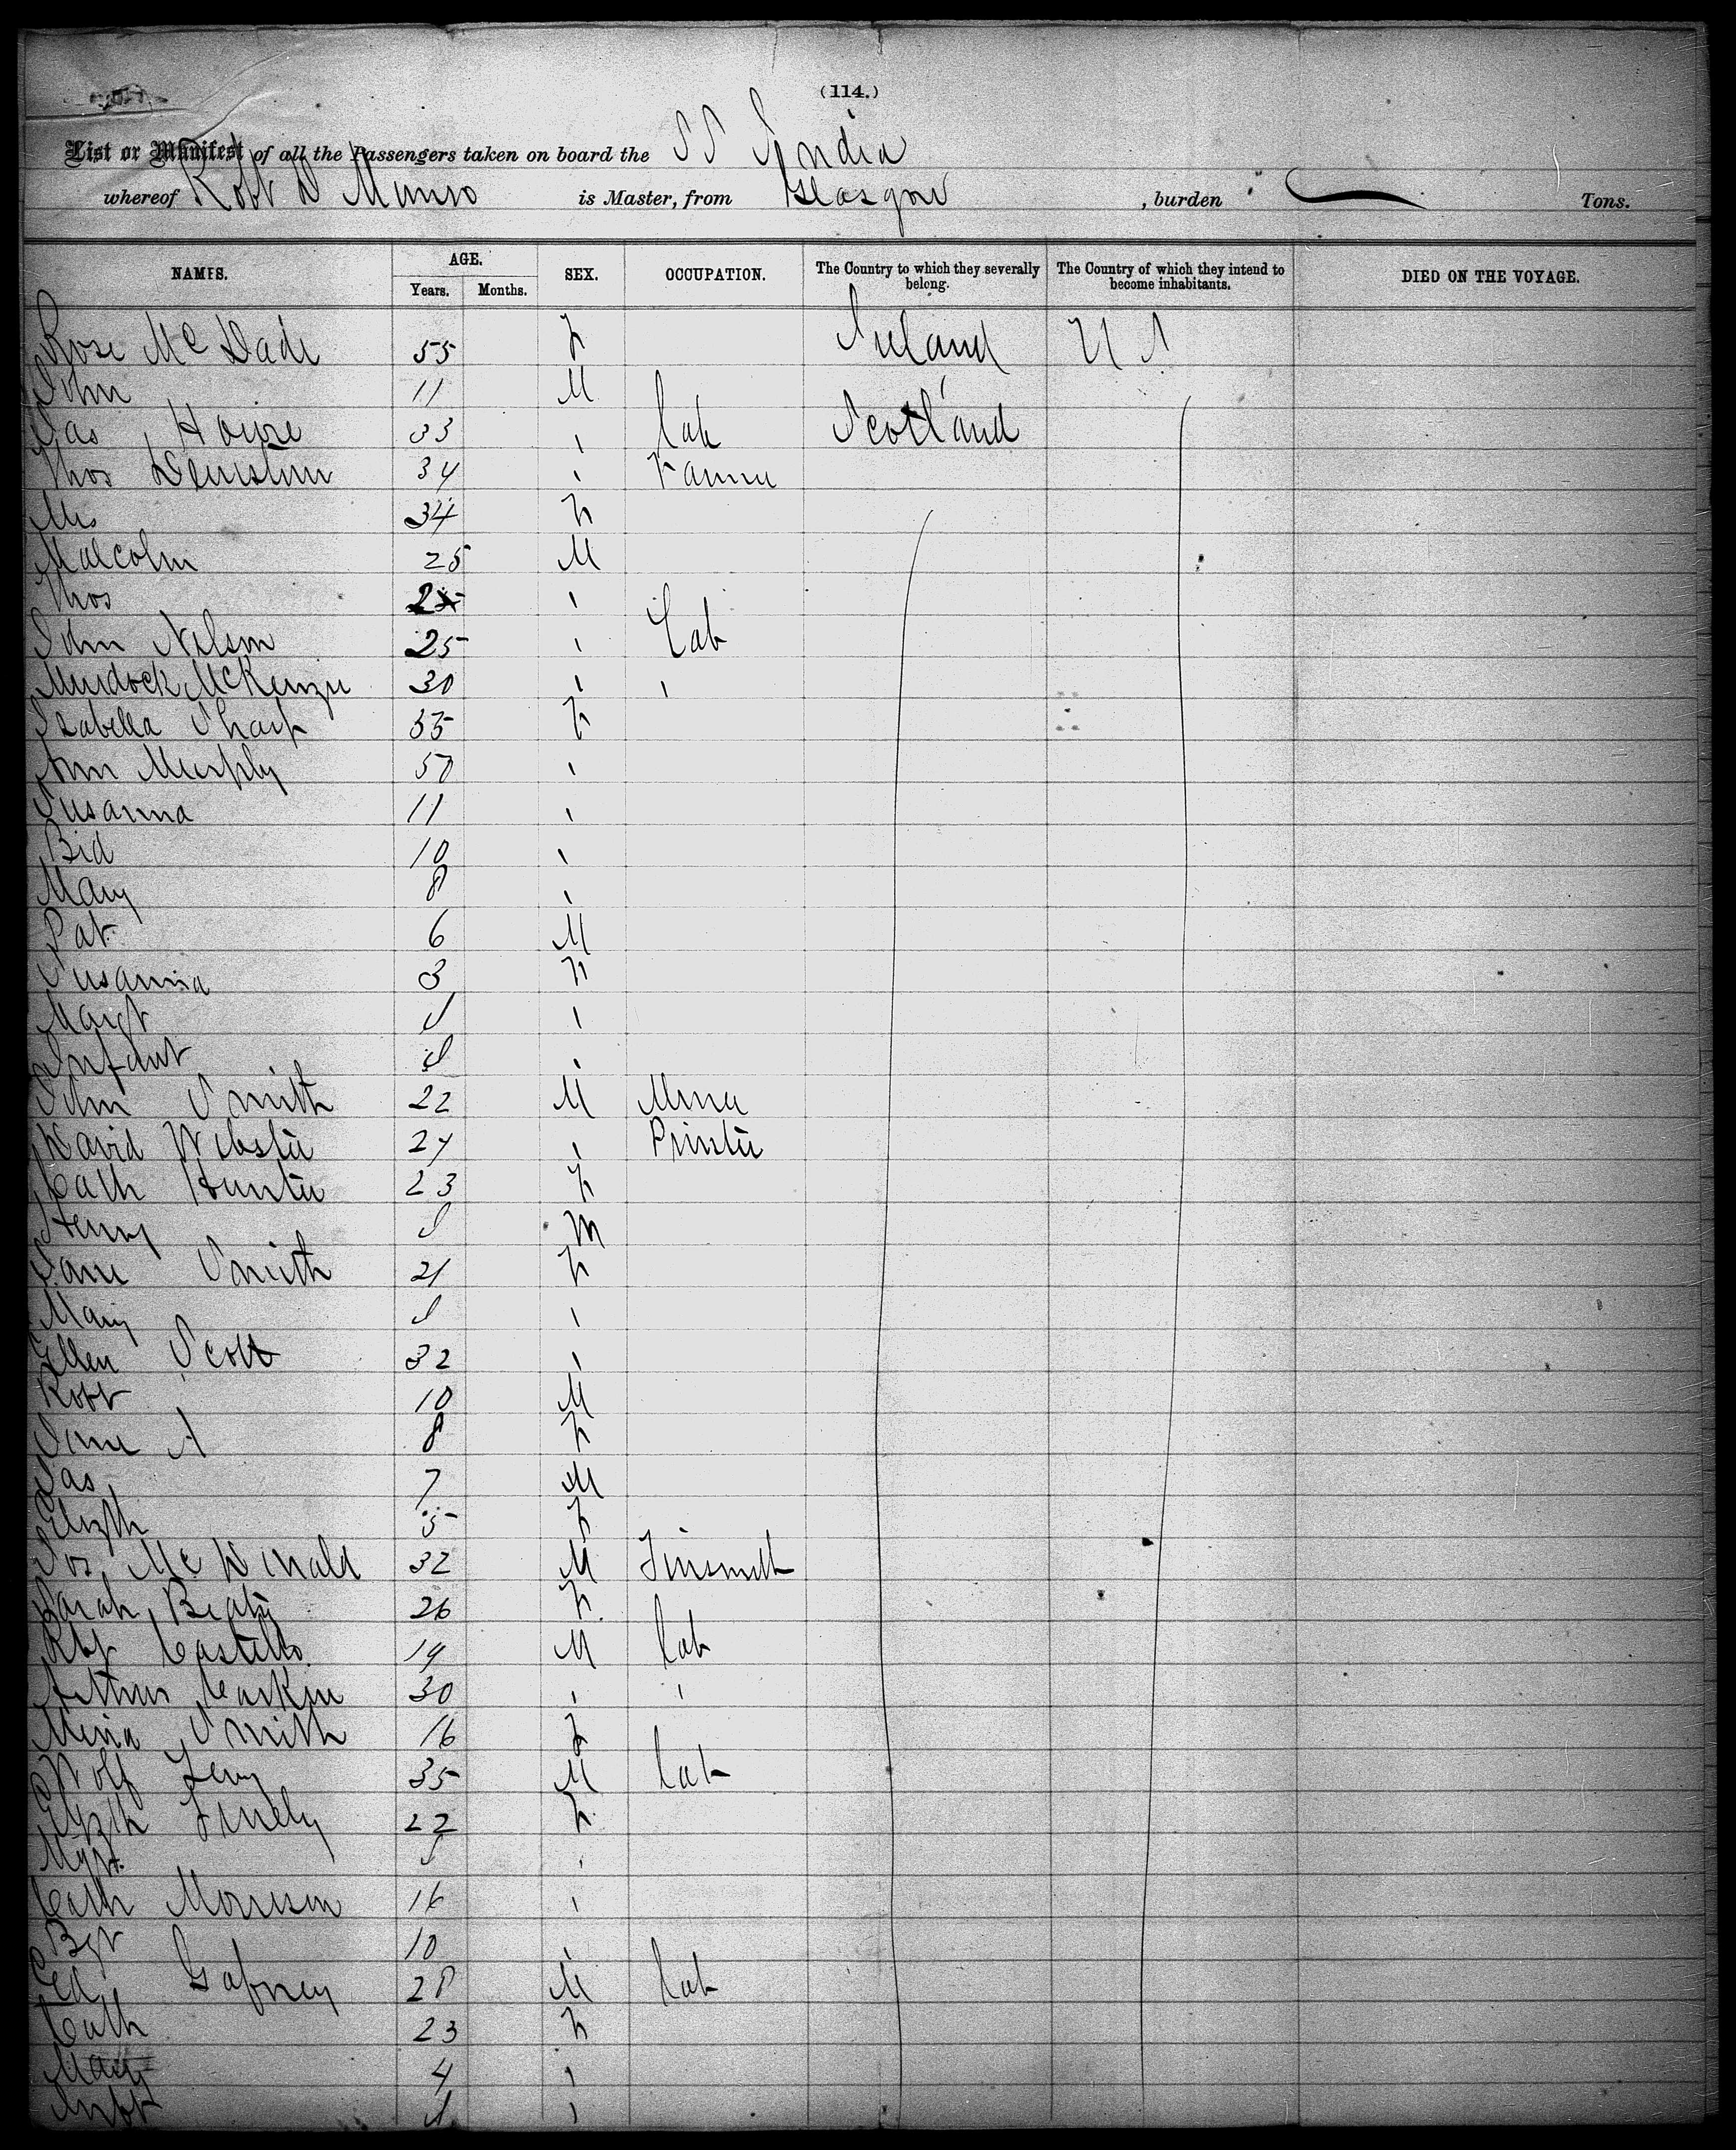 (114.)
List or Manifest of all the Passengers taken on board the SS India
whereof Robt D Munro is Master, from Glasgow, burden Tons.
NAMES. AGE. Years. Months. SEX. OCCUPATION. The Country to which they severally belong. The Country of which they intend to become inhabitants. DIED ON THE VOYAGE.
Rose McDade 55 F Ireland U S
John 11 M
Jas Howie 33 " Lab Scotland
Thos 34 " Farmer
Mrs 34 F
Malcolm M
Thos "
John Nelson 25 " Lab
Murdock McKenzie 30 " "
Isabella Sharp 35 F
Ann Murphy 50 "
Susanna 11 "
Bid 10 "
Mary 8 "
Pat 6 M
Susanna 3 F
Margt I "
Infant I "
John Smith 22 M Miner
David Webster 24 " Printer
Cath Hunter 23 F
Henry I M
Jane Smith 21 F
Mary I "
Ellen Scott 32 "
Robt 10 M
Jane A 8 F
Jas 7 M
Elizth 5 F
Jos McDonald 32 M Tinsmith
Sarah Beaty 26 F
Costello 19 M Lab
Arthur 30 " "
Mina Smith 16 F
Wolf Levy 35 M Lab
Elizth 22 F
Mgt I "
Cath Morrison 16 "
Bgt 10 "
Ed Gafney 28 M Lab
Cath 23 F
Mary 4 "
Inft I "